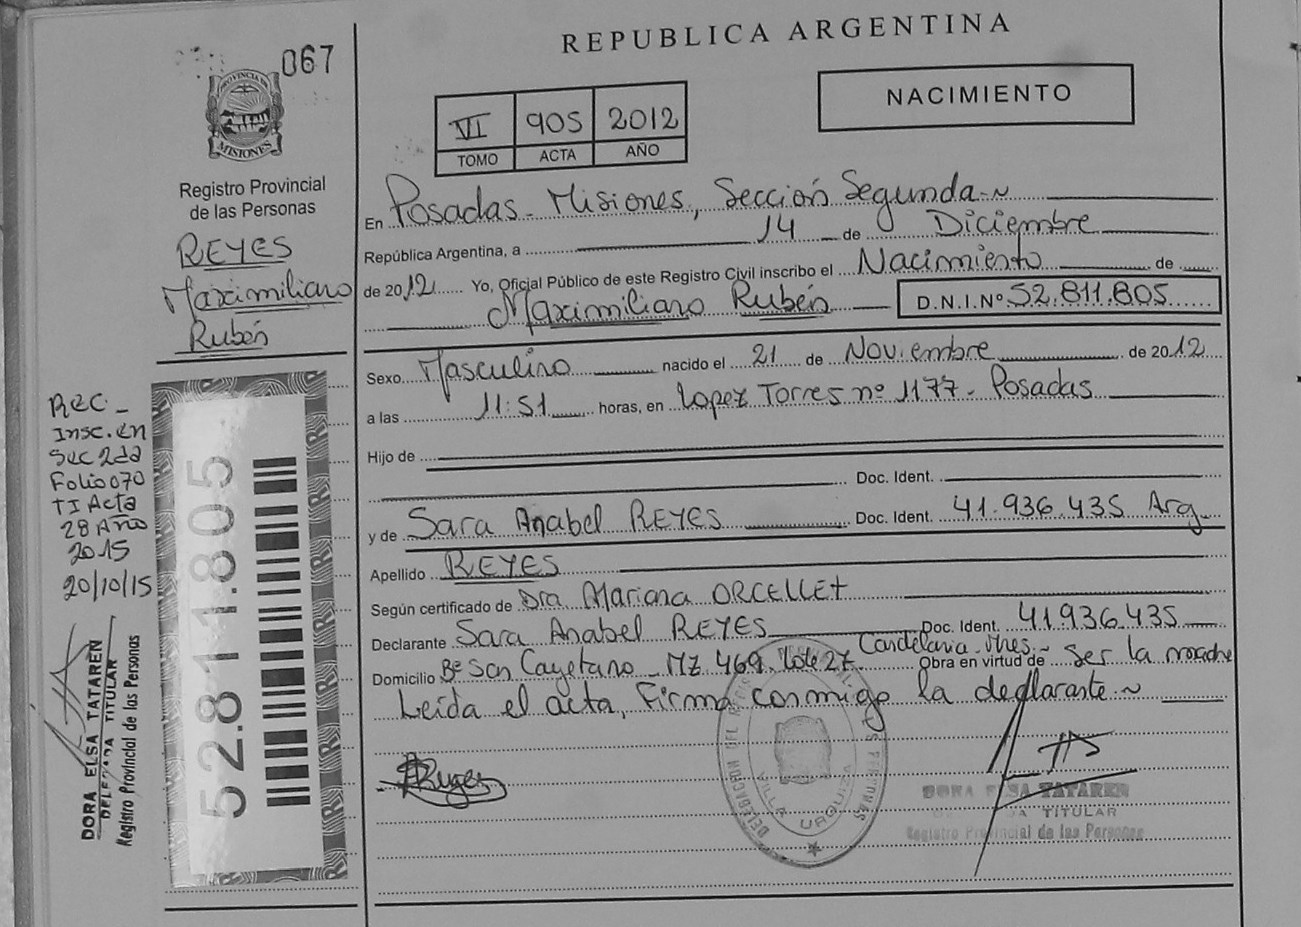 REPUBLICA ARGENTINA
067
PROVINCIA DE MISIONES
Registro Provincial
de las Personas
REYES
Maximiliano
Rubén
VI 905 2012
TOMO ACTA AÑO
NACIMIENTO
En Posadas - Misiones, Sección Segunda
República Argentina, a 14 de Diciembre
de 2012 Yo, Oficial Público de este Registro Civil inscribo el Nacimiento de
Maximiliano Rubén D.N.I.Nº 52.811.805
Sexo Masculino nacido el 21 de Noviembre de 2012
a las 11:51 horas, en Lopez Torres nº 1177 - Posadas
Hijo de
Doc. Ident.
y de Sara Anabel REYES Doc. Ident. 41.936.435 Arg
Apellido REYES
Según certificado de Dra. Mariana ORCELLET
Declarante Sara Anabel REYES Doc. Ident. 41.936.435
Domicilio Bº San Cayetano - Mz 469 Lote 27 Candelaria - Mnes.- Obra en virtud de ser la madre
Leída el acta, Firma conmigo la declarante
Reyes
DELEGACION DEL REGISTRO
DE LAS PERSONAS
VILLA URQUIZA
DORA ELSA TATAREN
TITULAR
Registro Provincial de las Personas
Rec -
Insc. en
Sec 2da
Folio 070
TI Acta
28 Año
2015
20/10/15
DORA ELSA TATAREN
DELEGADA TITULAR
Registro Provincial de las Personas
52.811.805